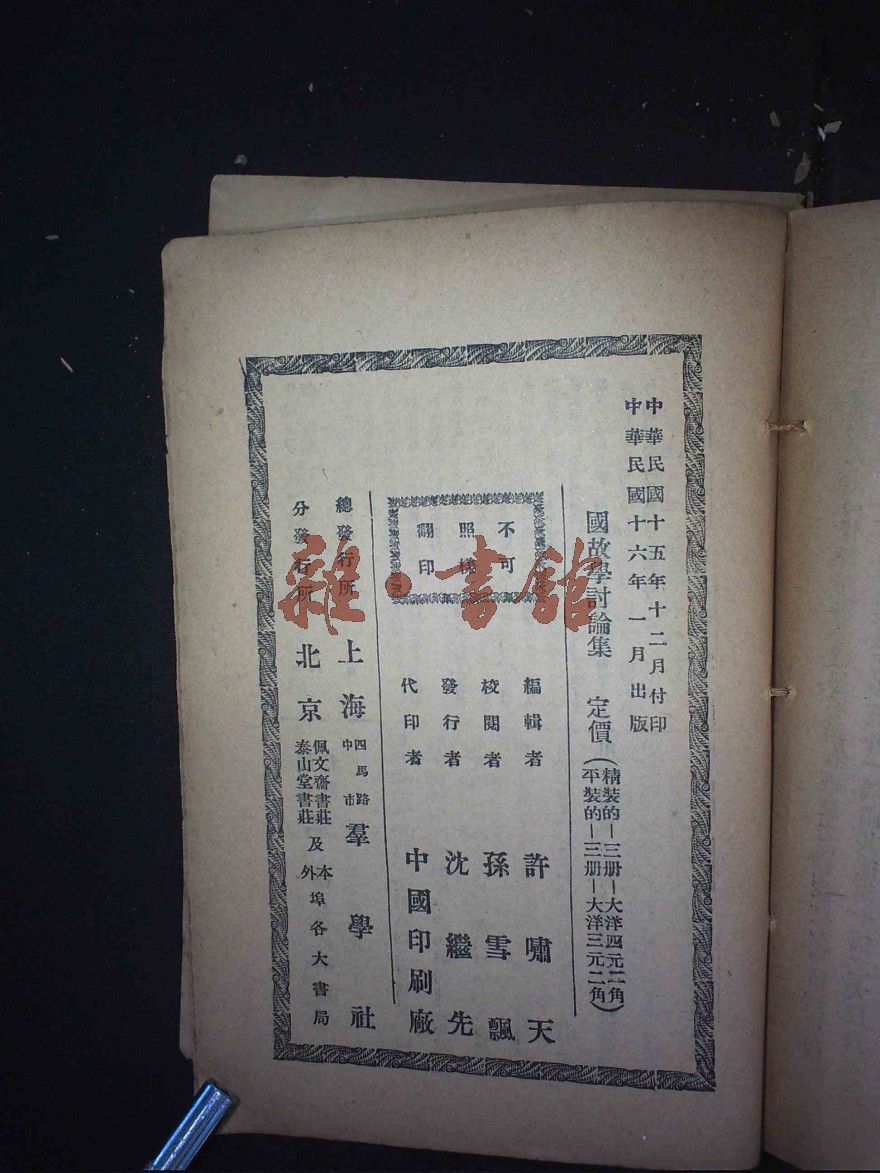 中華民國十五年十二月付印
中華民國十六年一月出版
國故學討論集 定價
(精裝的—三册—大洋四元二角)
(平裝的—三册—大洋三元二角)
不可
照樣
翻印
編輯者 許嘯天
校閱者 孫雪飄
發行者 沈繼先
代印者 中國印刷廠
總發行所 上海 四馬路中市 羣學社
分發行所 北京 佩文齋書莊 泰山堂書莊 及本外埠各大書局
雜·書館